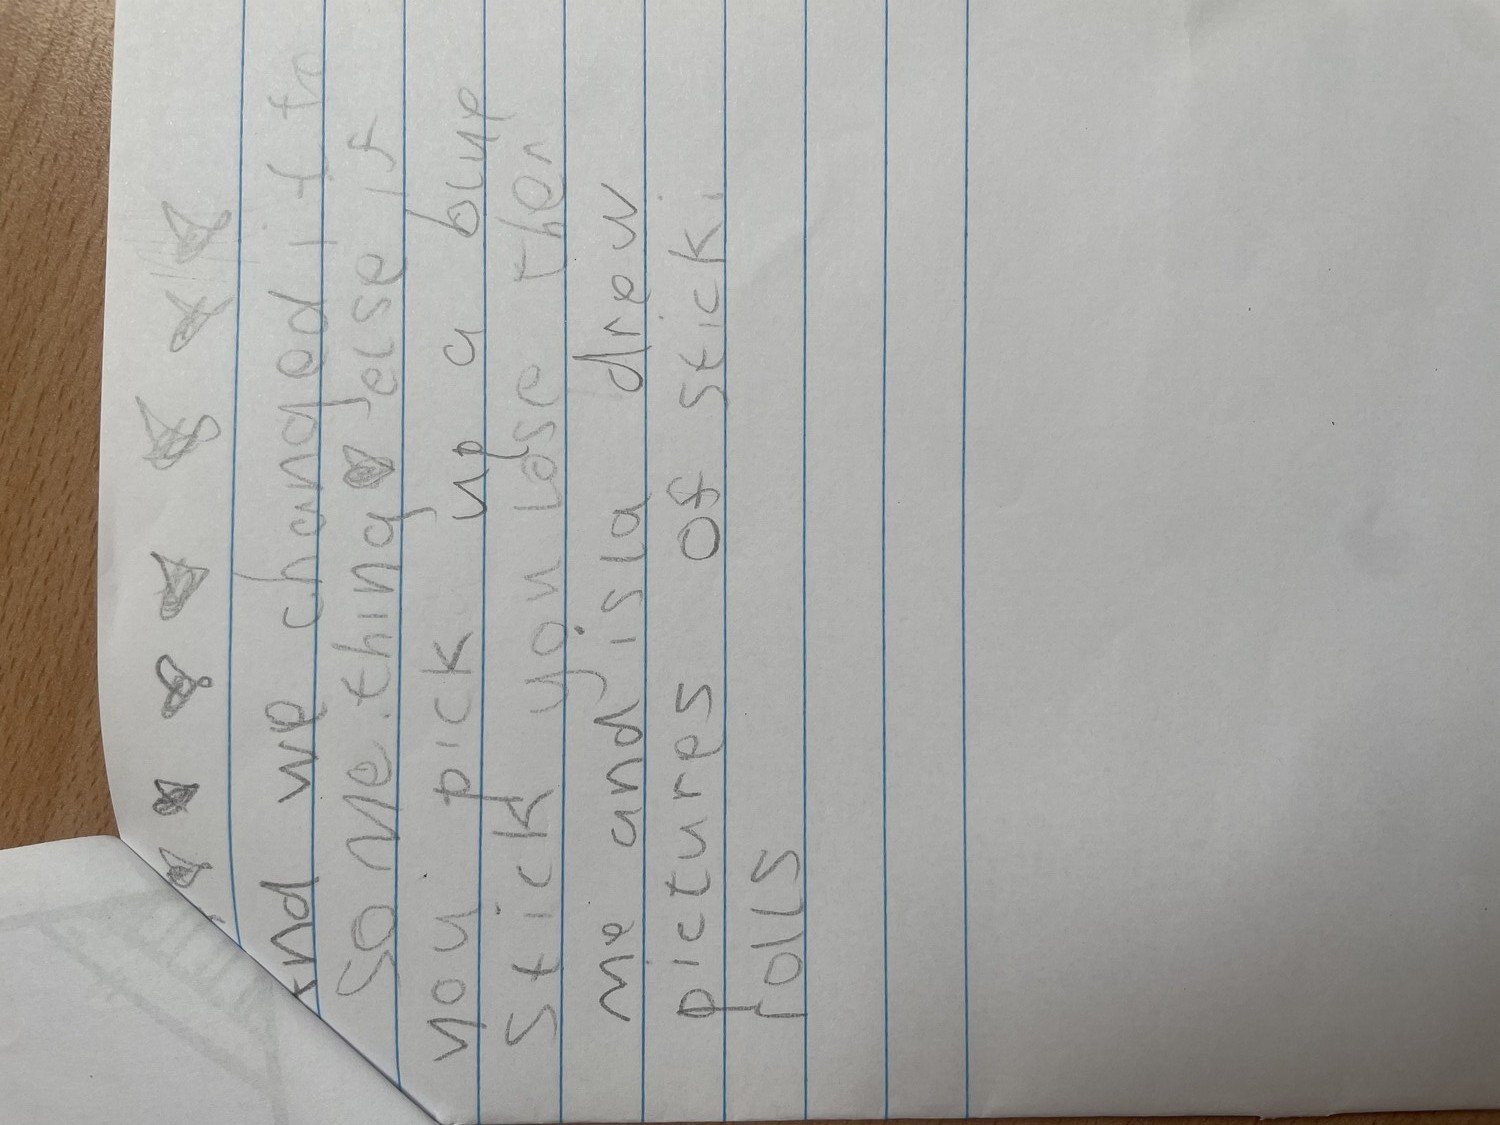 and we changed it to
some.thing else if
you pick up a blue
stick you lose then
me and isla drew
pictures of stick.